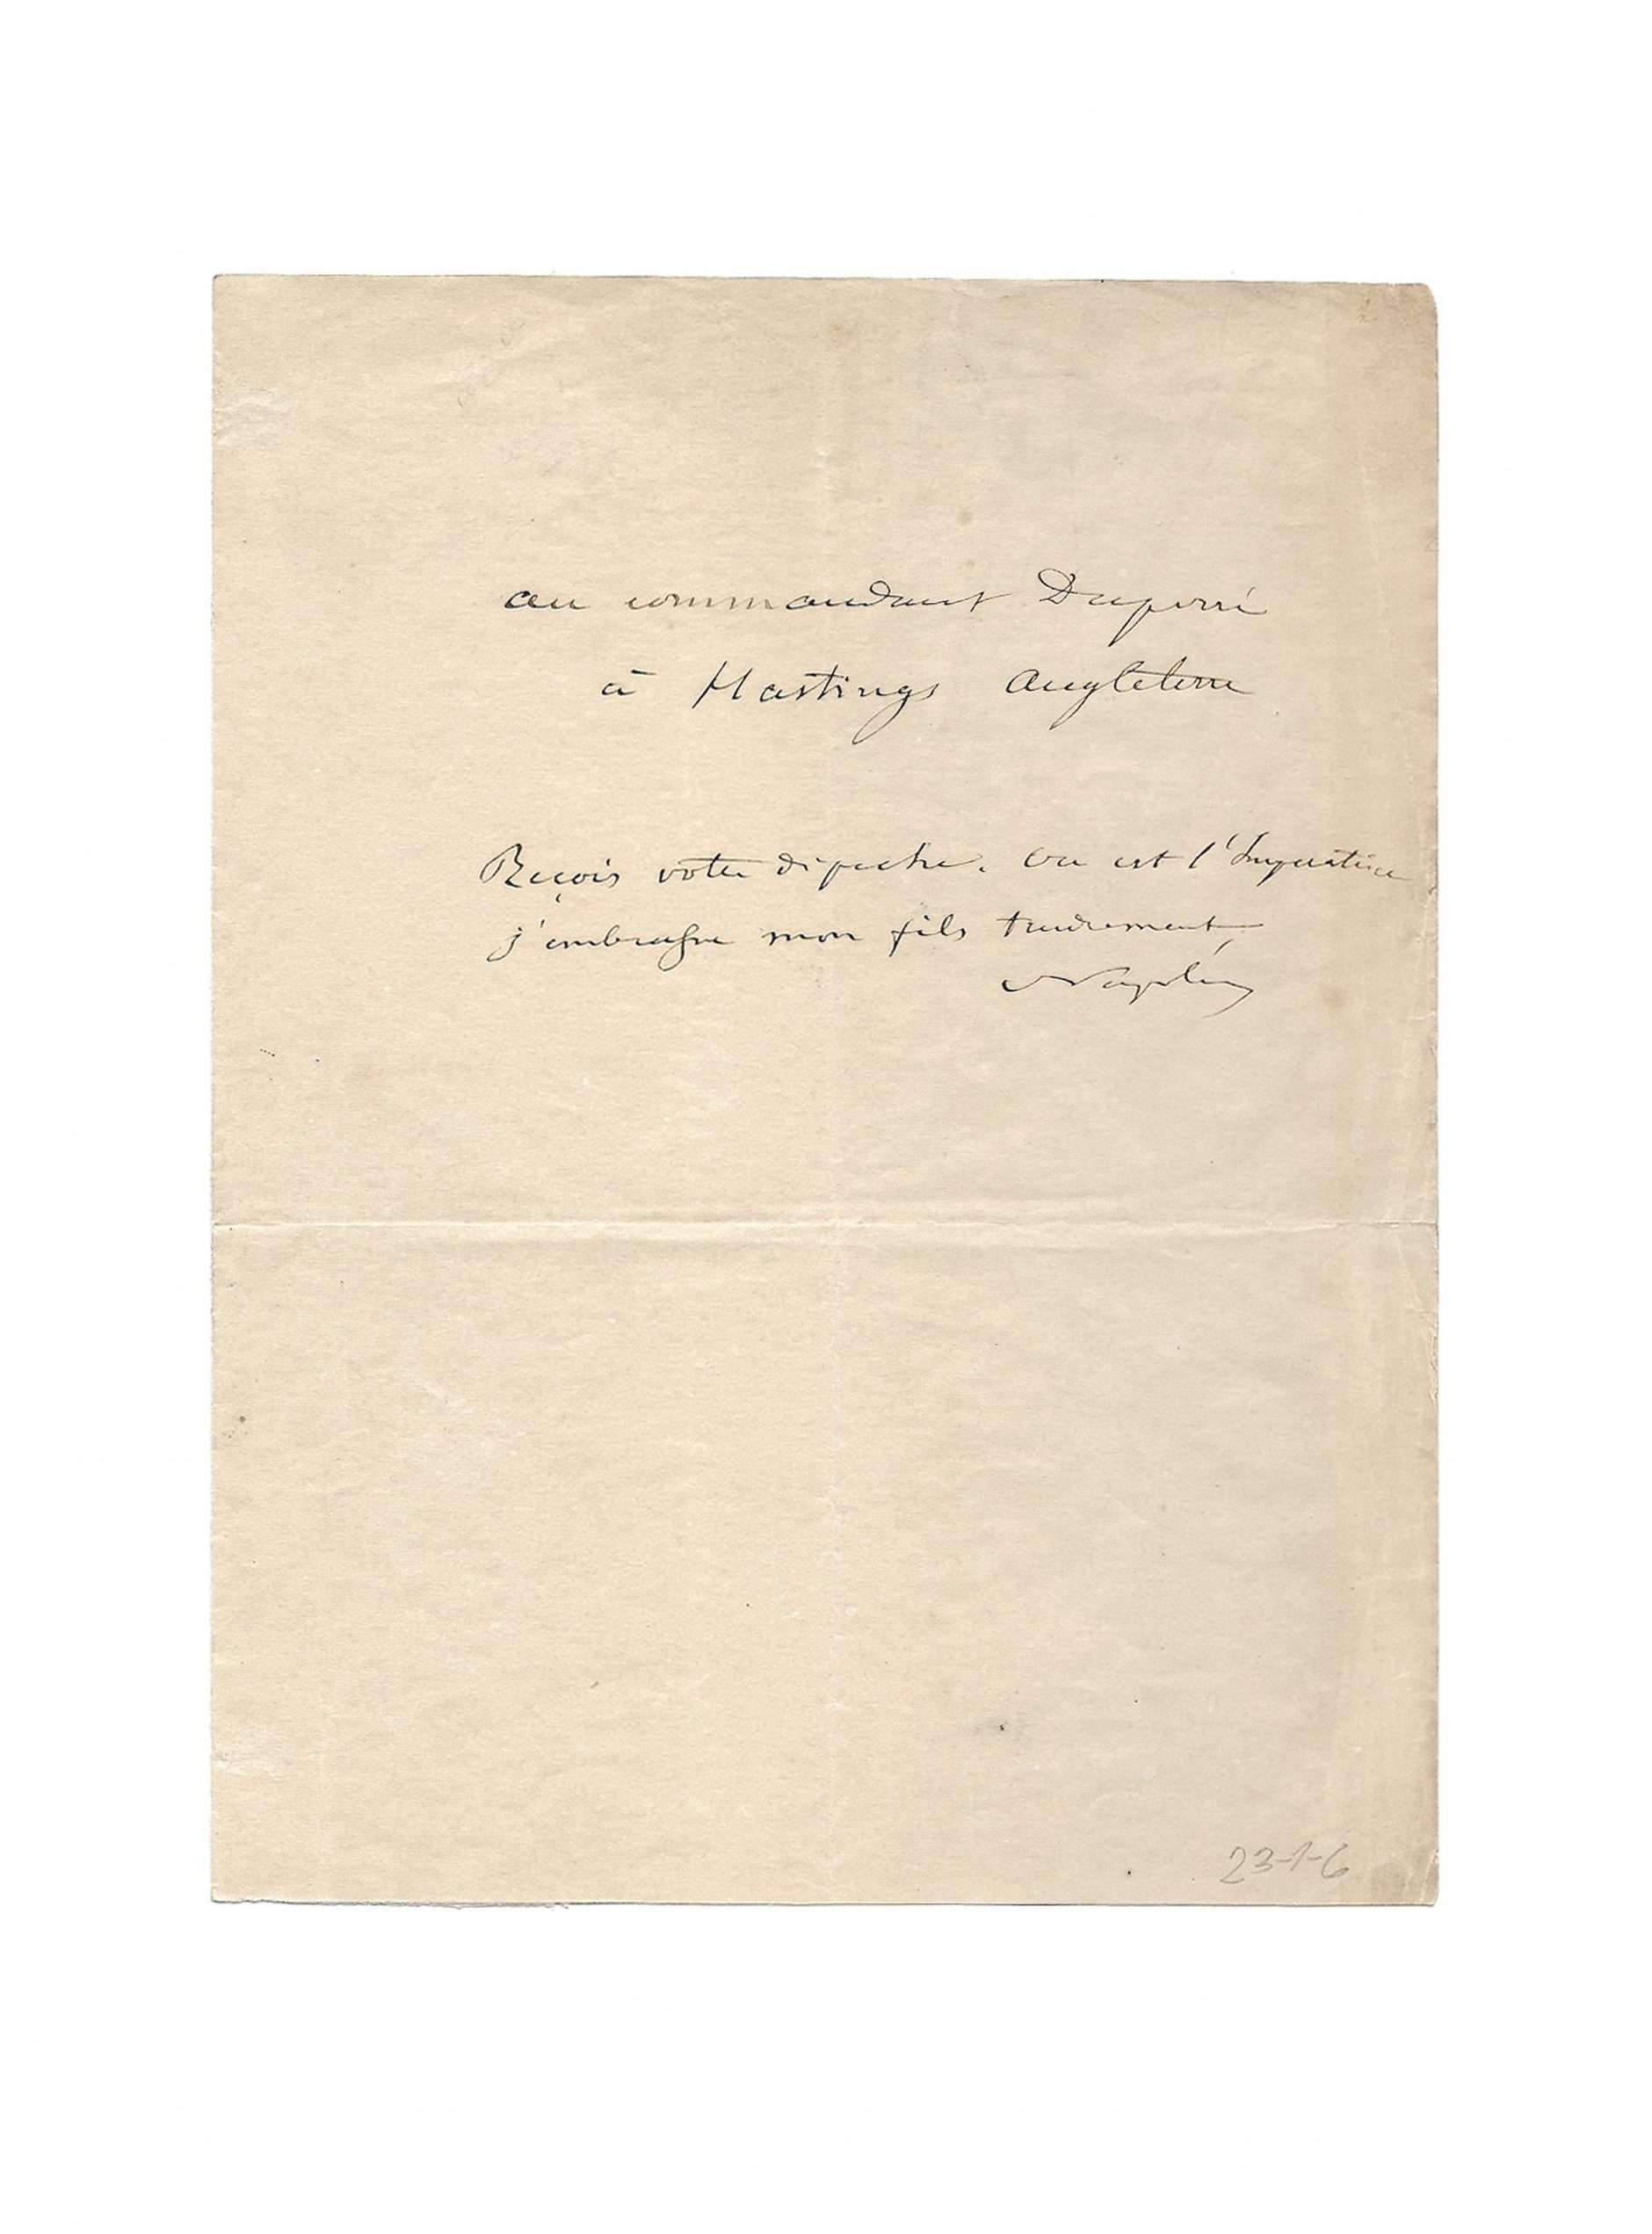 au commandant Duperré
à Hastings Angleterre
Reçois votre dépeche. Ou est l'Imperatrice ?
j'embrasse mon fils tendrement
Napoléon
23-1-6